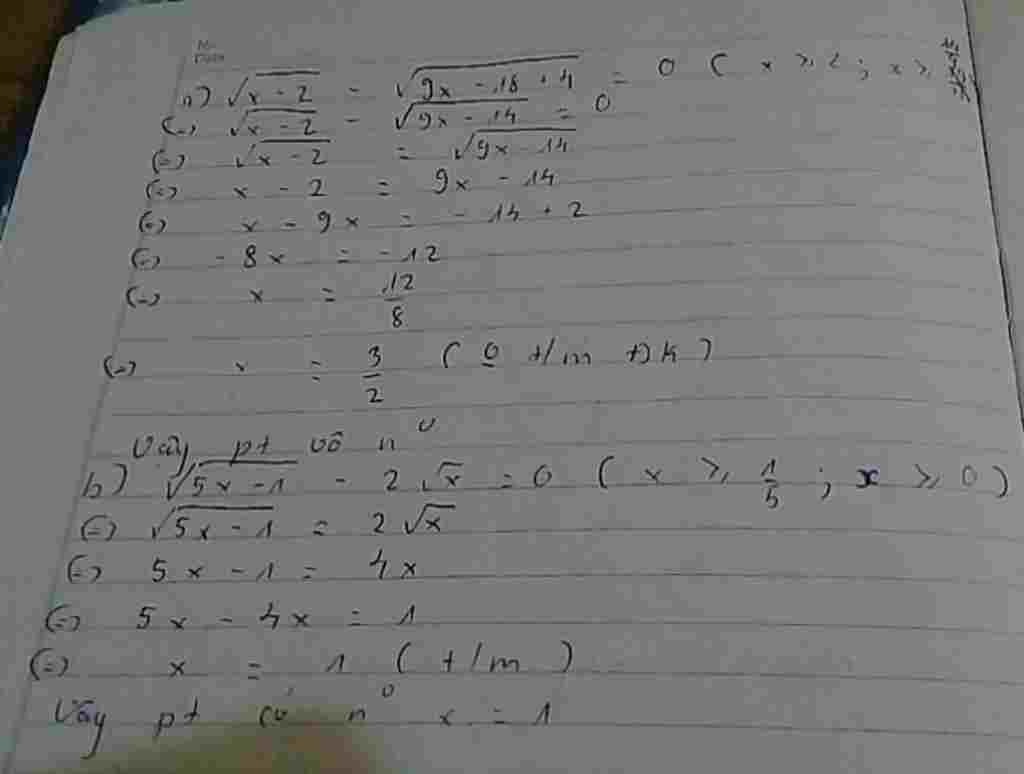 No.
Date
a) √(x - 2) - √(9x - 18 + 4) = 0 ( x ≥ 2 ; x ≥
(=) √(x - 2) - √(9x - 14) = 0
(=) √(x - 2) = √(9x - 14)
(=) x - 2 = 9x - 14
(=) x - 9x = - 14 + 2
(=) - 8x = - 12
(=) x = 12/8
(=) x = 3/2 ( o t/m tDk )
Vây pt vô n⁰
b) √(5x - 1) - 2√x = 0 ( x ≥ 1/5 ; x ≥ 0 )
(=) √(5x - 1) = 2√x
(=) 5x - 1 = 4x
(=) 5x - 4x = 1
(=) x = 1 ( t/m )
Vây pt có n⁰ x = 1